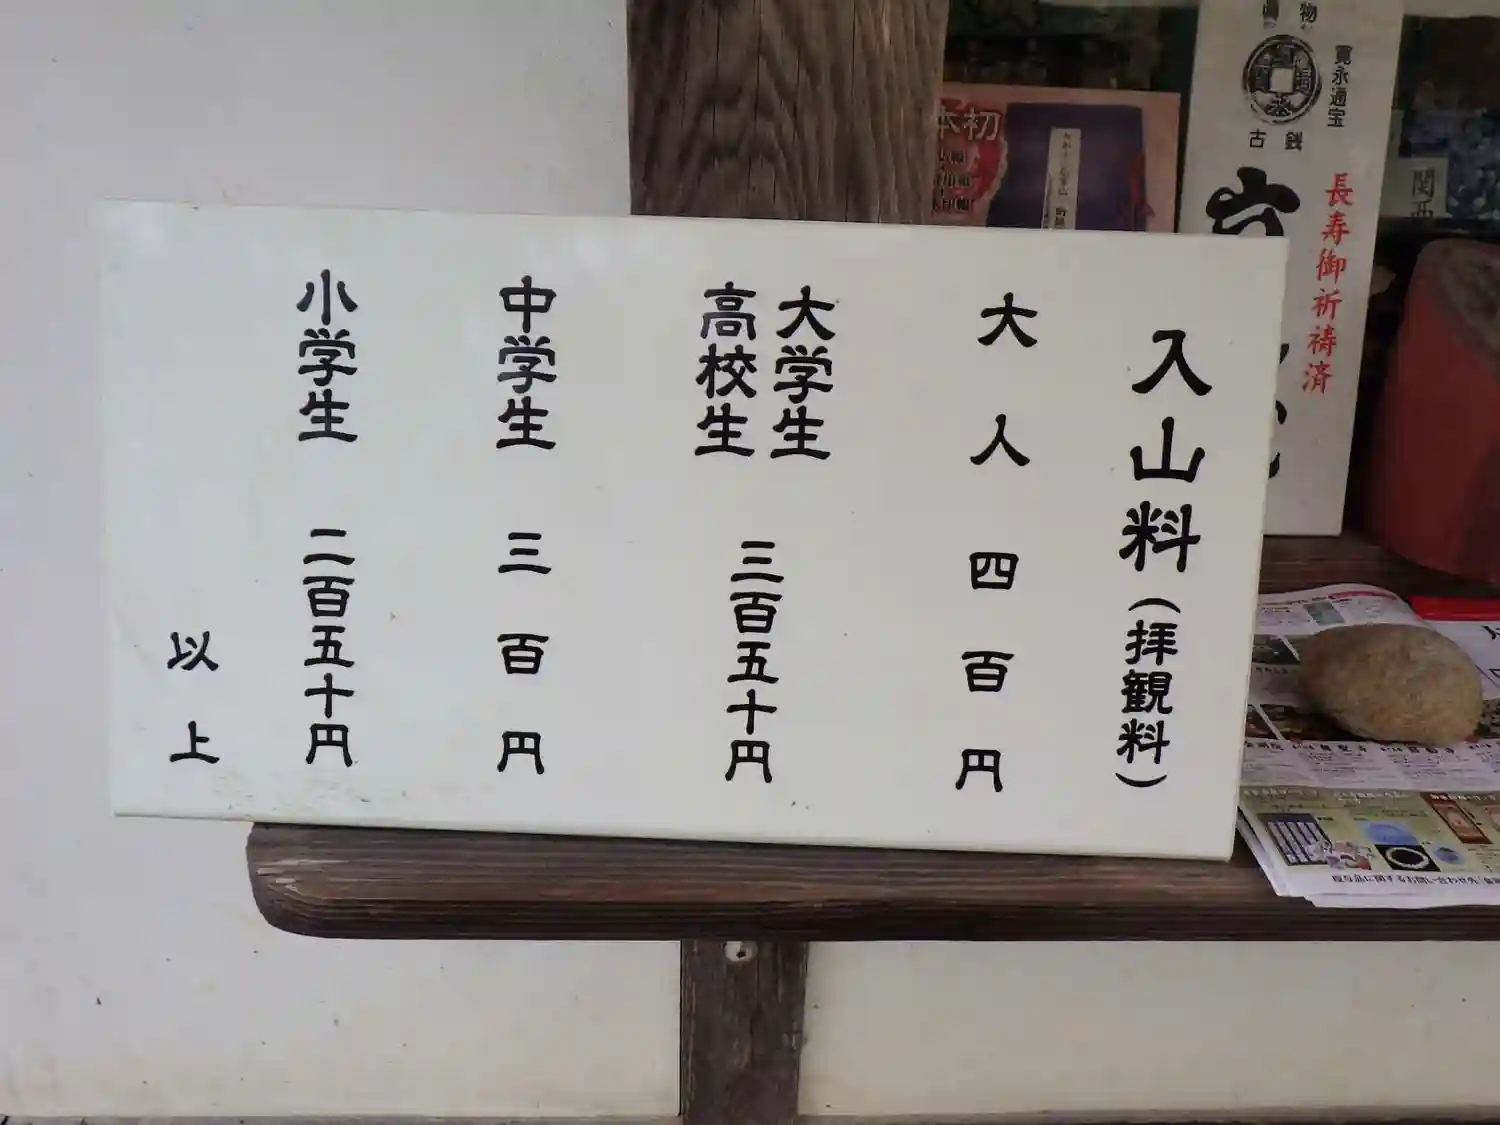 入山料（拝観料）
大人 四百円
大学生
高校生
三百五十円
中学生 三百円
小学生 二百五十円
以上
寛永通宝
古銭
長寿御祈祷済
本初
関西